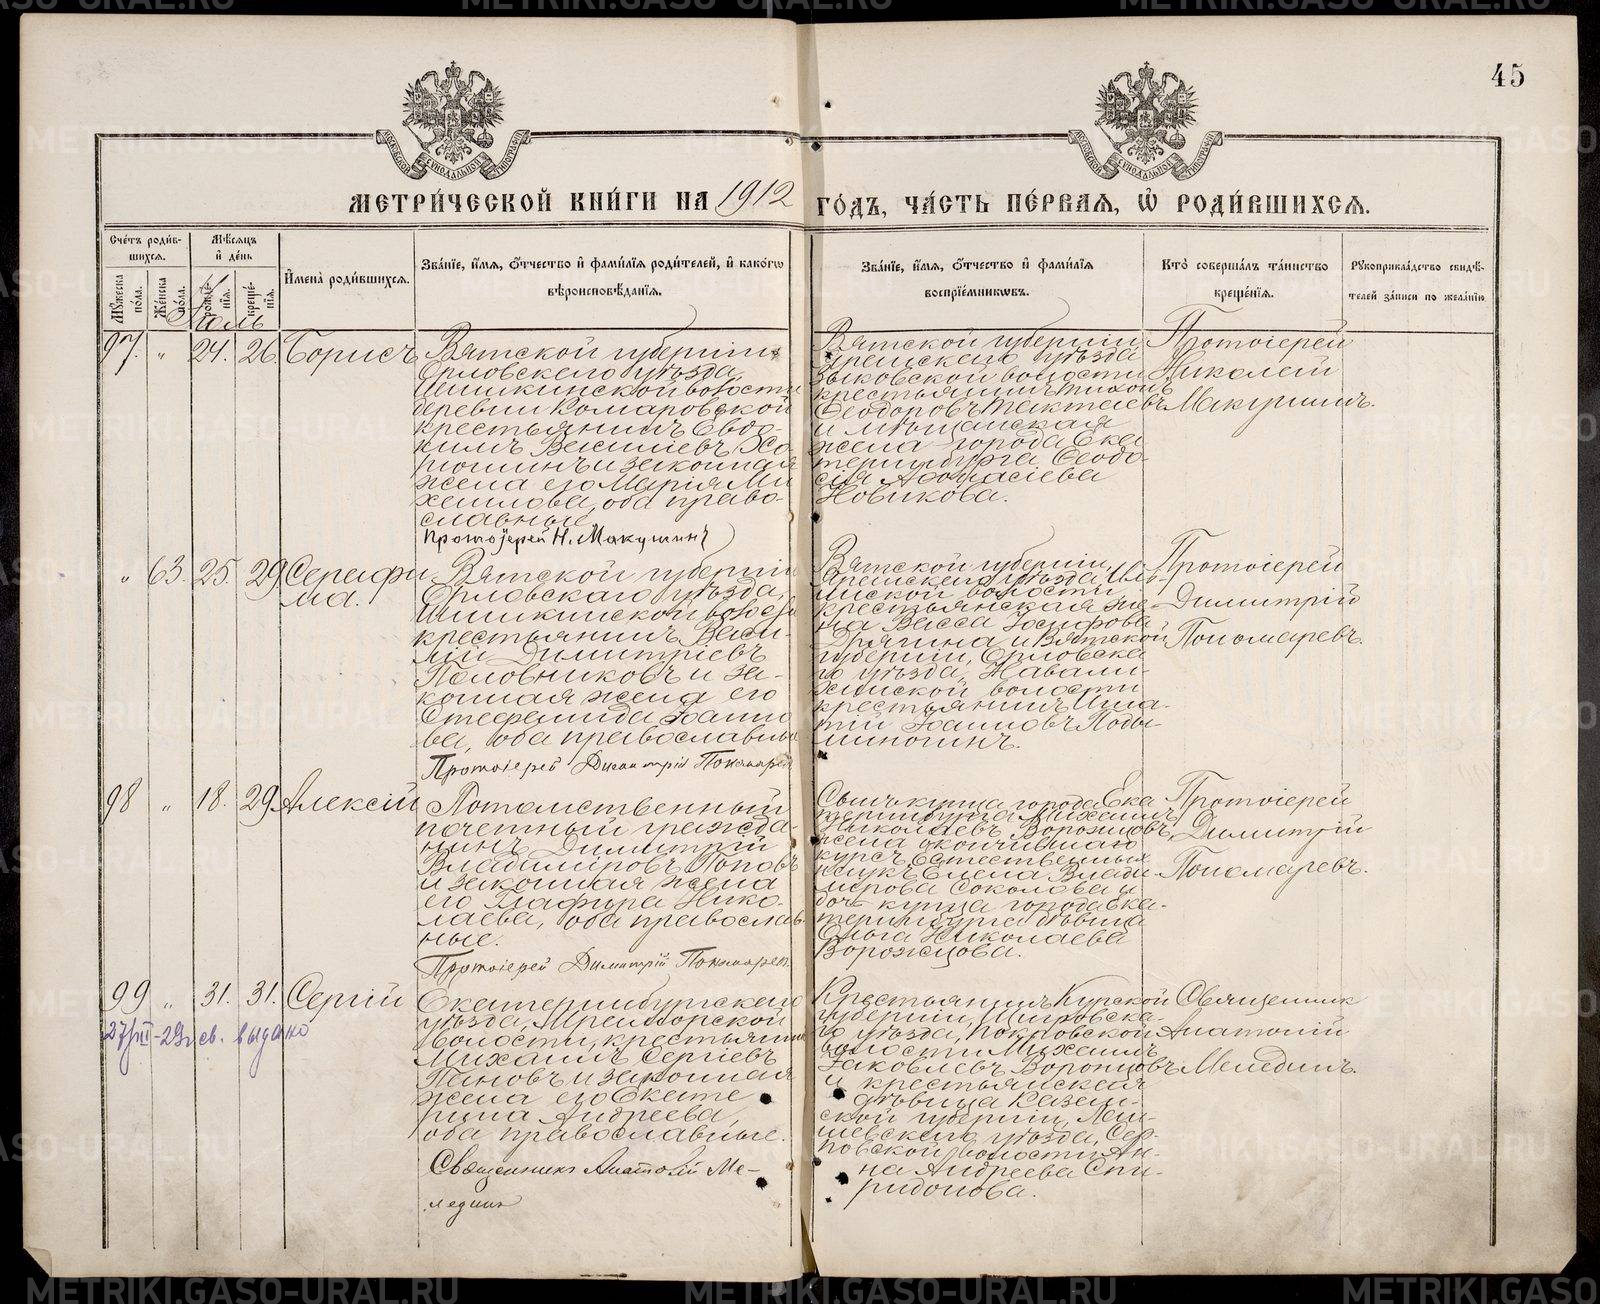 45
МЕТРИ́ЧЕСКОЙ КНИ́ГИ НА 1912 ГО́ДЪ, ЧА́СТЬ ПЕ́РВАЯ, Ѡ РОДИ́ВШИХСЯ.
Сче́тъ роди́в-
шихся.
Мѣ́сяцъ
и҆ де́нь
Мꙋ́жеска
по́ла.
Же́нска
по́ла.
рожде́-
нїѧ.
креще́-
нїѧ.
И҆мена̀ роди́вшихся.
Зва́нїе, и҆́мѧ, ѻ҆́тчество и҆ фами́лїѧ роди́телей, и҆ како́гѡ
вѣроисповѣ́данїѧ.
Зва́нїе, и҆́мѧ, ѻ҆́тчество и҆ фами́лїѧ
воспрїе́мникѡвъ.
Кто̀ соверша́лъ та́инство
креще́нїѧ.
Рꙋкоприкла́дство свидѣ́-
телей за́писи по жела́нїю
Іюль
97. " 24. 26. Борисъ
Вятской губерніи
Орловскаго уѣзда,
Шишкинской волости
деревни Комаровской
крестьянинъ Евдо-
кимъ Василіевъ Хо-
рошинъ и законная
жена его Марія Ми
хаилова, оба право-
славные
Протоіерей Н. Макушинъ
Вятской губерніи
Яренскаго уѣзда
Зыковской волости
крестьянинъ Тихонъ
Ѳеодоровъ Тактаевъ
и мѣщанская
жена города Ека
теринбурга Ѳеодо-
сія Аѳанасіева
Новикова.
Протоіерей
Николай
Макушинъ.
" 63. 25. 29. Серафи
ма.
Вятской губерніи
Орловскаго уѣзда,
Шишкинской волости
крестьянинъ Васи-
лій Димитріевъ
Половниковъ и за-
конная жена его
Стефанида Іоанно
ва, оба православные
Протоіерей Димитрій Пономарев
Вятской губерніи,
Яренскаго уѣзда,
волости,
крестьянская же-
на Васса Іосифова
Дрягина и Вятской
губерніи, Орловска
го уѣзда,
волости
крестьянинъ Игна-
тій Іоанновъ Поды-
миногинъ.
Протоіерей
Димитрій
Пономаревъ.
98 " 18. 29. Алексій
Потомственный
почетный гражда-
нинъ Димитрій
Владиміровъ Поповъ
и законная жена
его Глафира Нико-
лаева, оба православ
ные.
Протоіерей Димитрій Пономарев.
Сынъ купца города Ека
теринбурга Михаилъ
Николаевъ Ворожцовъ,
жена окончившаго
курсъ естественныхъ
наукъ Елена Влади-
мірова Соколова и
дочь купца города Ека-
теринбурга дѣвица
Ольга Николаева
Ворожцова.
Протоіерей
Димитрій
Пономаревъ.
99 " 31. 31. Сергій
27/III-29 г св. выдано
Екатеринбургскаго
уѣзда, Мраморской
волости, крестьянин
Михаилъ Сергіевъ
Пановъ и законная
жена его Екате
рина Андреева,
оба православные.
Священникъ Анатолій Ме-
ледин
Крестьянинъ Курской
губерніи, Щигровска-
го уѣзда, Покровской
волости Михаилъ
Іаковлевъ Воронцовъ
и крестьянская
дѣвица Казан-
ской губерніи, Лаи-
шевскаго уѣзда,
волости Ан-
на Андреева Спи-
ридонова.
Священник
Анатолій
Мелединъ.